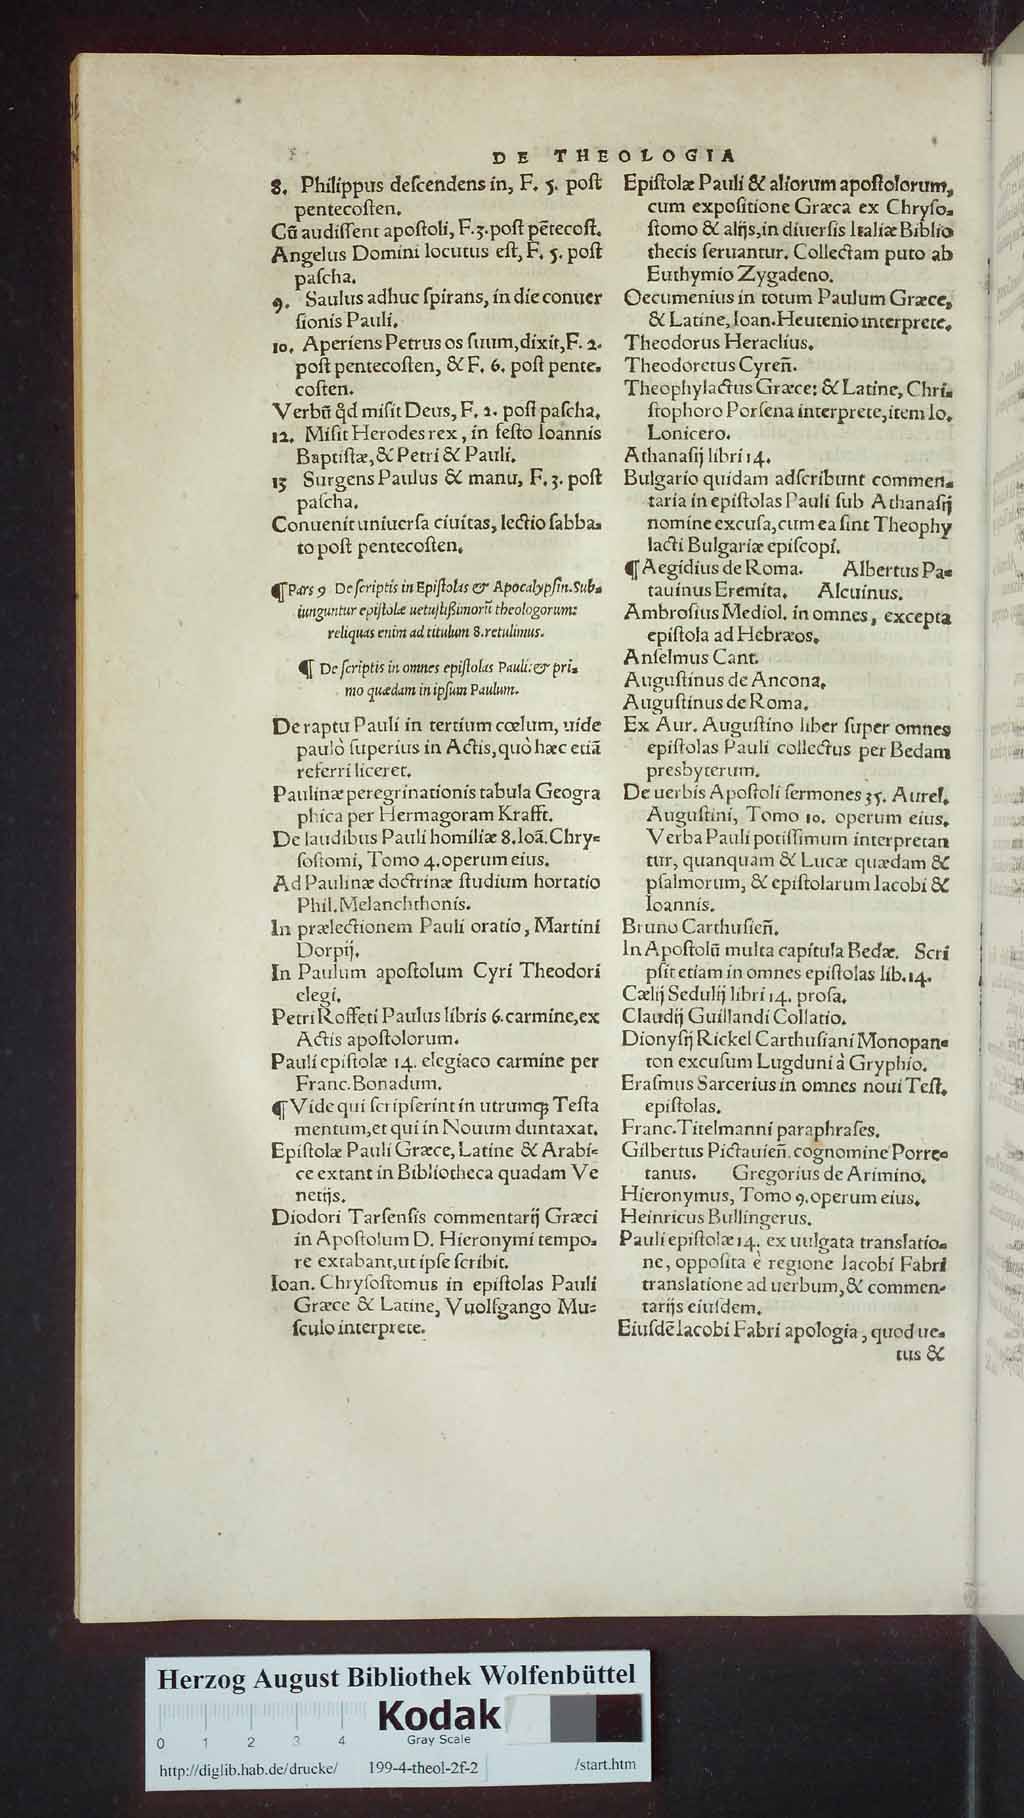 DE THEOLOGIA
8. Philippus deſcendens in, F. 5. poſt
pentecoſten.
Cũ audiſſent apoſtoli, F.3.poſt pẽtecoſt.
Angelus Domini locutus eſt, F. 5. poſt
paſcha.
9. Saulus adhuc ſpirans, in die conuer
ſionis Pauli.
10. Aperiens Petrus os ſuum, dixit, F. 2.
poſt pentecoſten, & F. 6. poſt pente-
coſten.
Verbũ qd miſit Deus, F. 2. poſt paſcha.
12. Miſit Herodes rex, in feſto Ioannis
Baptiſtæ, & Petri & Pauli.
13 Surgens Paulus & manu, F. 3. poſt
paſcha.
Conuenit uniuerſa ciuitas, lectio ſabba-
to poſt pentecoſten.
¶ Pars 9 De ſcriptis in Epiſtolas & Apocalypſin. Sub-
iunguntur epiſtolæ uetuſtiſſimorũ theologorum:
reliquas enim ad titulum 8. retulimus.
¶ De ſcriptis in omnes epiſtolas Pauli: & pri-
mo quædam in ipſum Paulum.
De raptu Pauli in tertium cœlum, uide
paulò ſuperius in Actis, quò hæc etiã
referri liceret.
Paulinæ peregrinationis tabula Geogra
phica per Hermagoram Krafft.
De laudibus Pauli homiliæ 8. Ioã. Chry-
ſoſtomi, Tomo 4. operum eius.
Ad Paulinæ doctrinæ ſtudium hortatio
Phil. Melanchthonis.
In prælectionem Pauli oratio, Martini
Dorpij.
In Paulum apoſtolum Cyri Theodori
elegi.
Petri Roſſeti Paulus libris 6. carmine, ex
Actis apoſtolorum.
Pauli epiſtolæ 14. elegiaco carmine per
Franc. Bonadum.
¶ Vide qui ſcripſerint in utrumq; Teſta
mentum, et qui in Nouum duntaxat.
Epiſtolæ Pauli Græce, Latine & Arabi-
ce extant in Bibliotheca quadam Ve
netijs.
Diodori Tarſenſis commentarij Græci
in Apoſtolum D. Hieronymi tempo-
re extabant, ut ipſe ſcribit.
Ioan. Chryſoſtomus in epiſtolas Pauli
Græce & Latine, Vuolfgango Mu-
ſculo interprete.
Epiſtolæ Pauli & aliorum apoſtolorum,
cum expoſitione Græca ex Chryſo-
ſtomo & alijs, in diuerſis Italiæ Biblio
thecis ſeruantur. Collectam puto ab
Euthymio Zygadeno.
Oecumenius in totum Paulum Græce,
& Latine, Ioan. Heutenio interprete.
Theodorus Heraclius.
Theodoretus Cyreñ.
Theophylactus Græce: & Latine, Chri-
ſtophoro Porſena interprete, item Io.
Lonicero.
Athanaſij libri 14.
Bulgario quidam adſcribunt commen-
taria in epiſtolas Pauli ſub Athanaſij
nomine excuſa, cum ea ſint Theophy
lacti Bulgariæ epiſcopi.
¶ Aegidius de Roma. Albertus Pa-
tauinus Eremita. Alcuinus.
Ambroſius Mediol. in omnes, excepta
epiſtola ad Hebræos.
Anſelmus Cant.
Auguſtinus de Ancona.
Auguſtinus de Roma.
Ex Aur. Auguſtino liber ſuper omnes
epiſtolas Pauli collectus per Bedam
presbyterum.
De uerbis Apoſtoli ſermones 35. Aurel.
Auguſtini, Tomo 10. operum eius.
Verba Pauli potiſſimum interpretan
tur, quanquam & Lucæ quædam &
pſalmorum, & epiſtolarum Iacobi &
Ioannis.
Bruno Carthuſieñ.
In Apoſtolũ multa capitula Bedæ. Scri
pſit etiam in omnes epiſtolas lib. 14.
Cælij Sedulij libri 14. proſa.
Claudij Guillandi Collatio.
Dionyſij Rickel Carthuſiani Monopan-
ton excuſum Lugduni à Gryphio.
Eraſmus Sarcerius in omnes noui Teſt.
epiſtolas.
Franc. Titelmanni paraphraſes.
Gilbertus Pictauieñ. cognomine Porre-
tanus. Gregorius de Arimino.
Hieronymus, Tomo 9. operum eius.
Heinricus Bullingerus.
Pauli epiſtolæ 14. ex uulgata translatio-
ne, oppoſita è regione Iacobi Fabri
translatione ad uerbum, & commen-
tarijs eiuſdem.
Eiuſdẽ Iacobi Fabri apologia, quod ue-
tus &
Herzog August Bibliothek Wolfenbüttel
Kodak
Gray Scale
0 1 2 3 4
http://diglib.hab.de/drucke/ 199-4-theol-2f-2 /start.htm